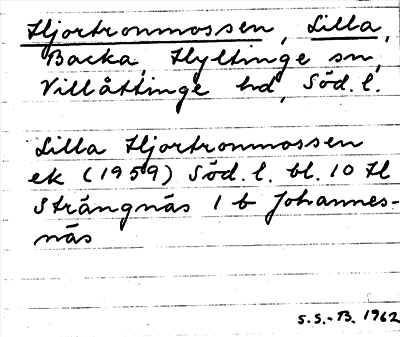 Hjortronmossen, Lilla,
Backa, Hyltinge sn,
Villåttinge hd, Söd. l.
Lilla Hjortronmossen
ek (1959) Söd. l. bl. 10 H
Strängnäs 1 b Johannes-
näs
S.S.-B. 1962